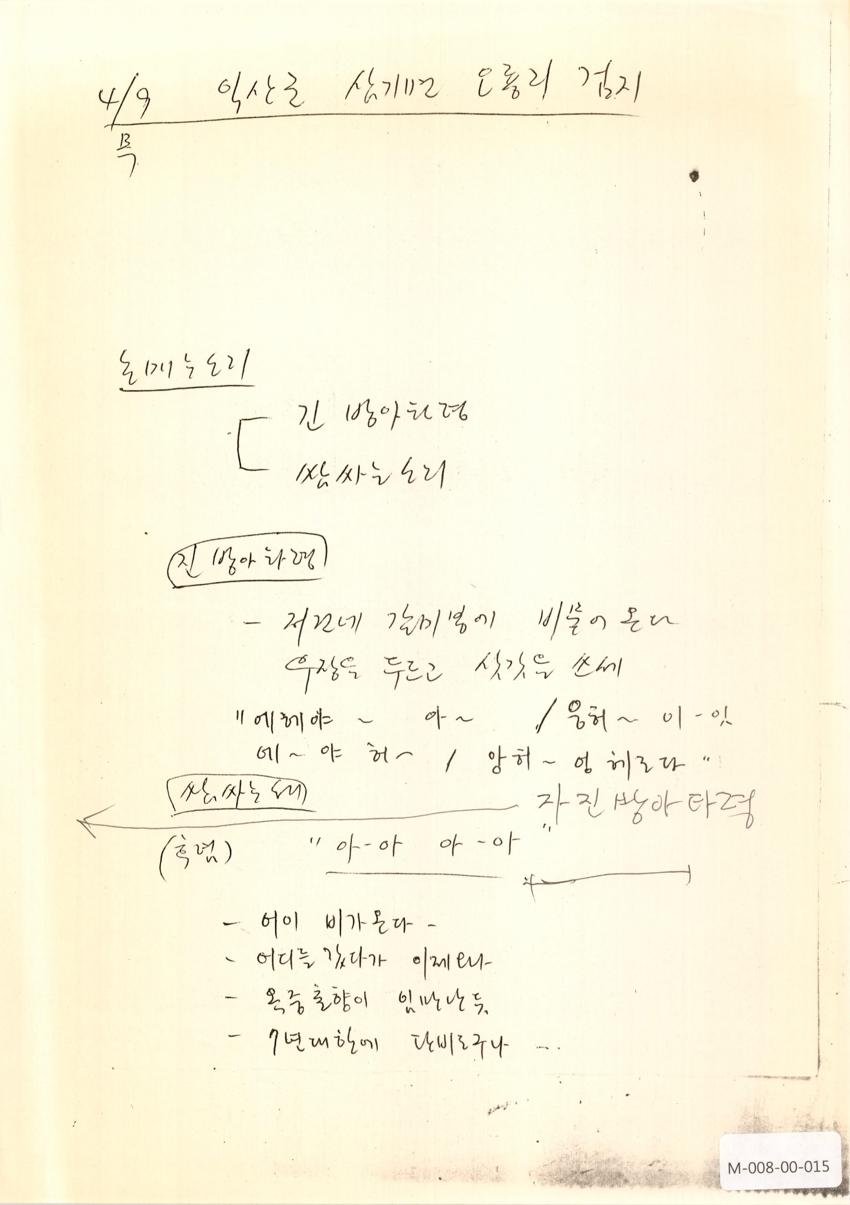 4/9 익산군 삼기면 오룡리 검지
목
논매는소리
긴 방아타령
쌈싸는소리
진 방아타령
- 저건네 갈미봉에 비묻어 온다
우장을 두르고 삿갓을 쓰세
"에헤야 ~ 아~ / 응허~ 이-잇
에~ 야 허~ / 앙허~ 엉 헤로다"
쌈싸는소리
자진방아타령
(후렴) "아-아 아-아"
- 어이 비가온다 -
- 어디를 갔다가 이제오나
- 옥중춘향이 임만난듯
- 7년대한에 단비로구나 ...
M-008-00-015